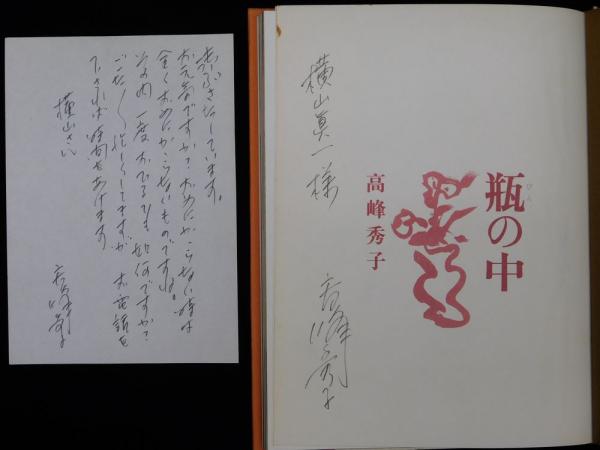 出ぶさたしています。
お元気ですか？おめにかゝらない時は
全くおめにかゝらないものですね。
その内一度おひるでも如何ですか？
ごた〱忙しくしてますが、お電話を
下されば時間をあけます
横山さま
高峰秀子
横山真一様
高峰秀子
瓶の中
びん
高峰秀子